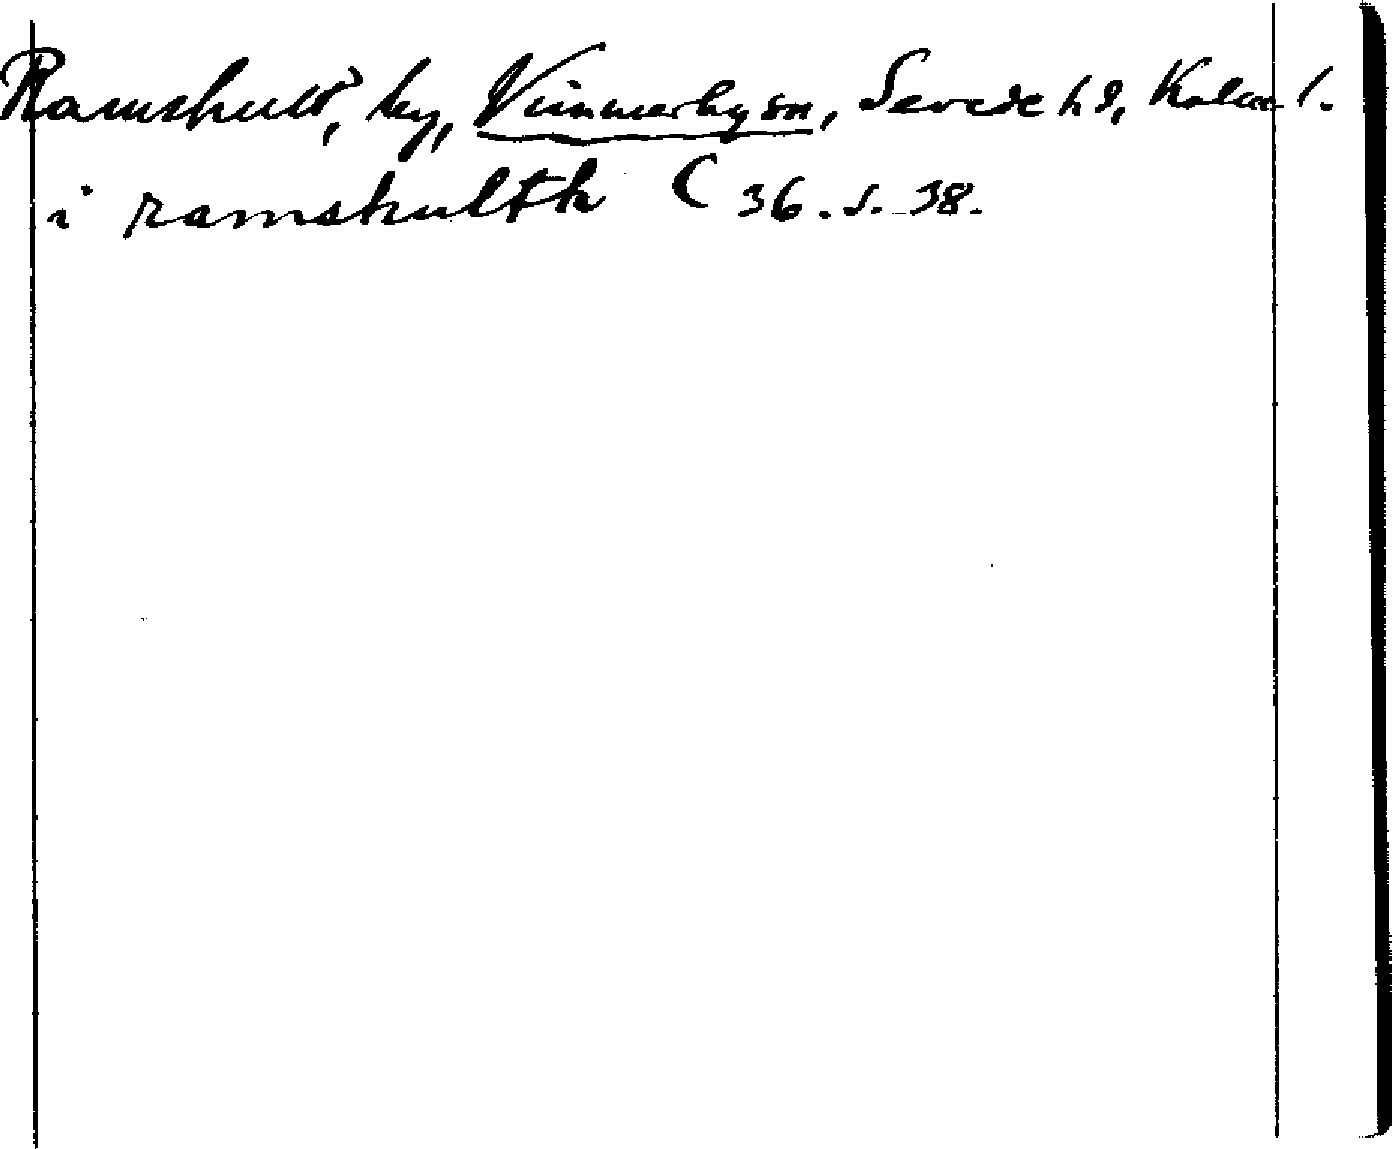 Ramshult, by, Vimmerby sn, Sevede hd, Kalm l.
i ramshulth C 36. s. 38.